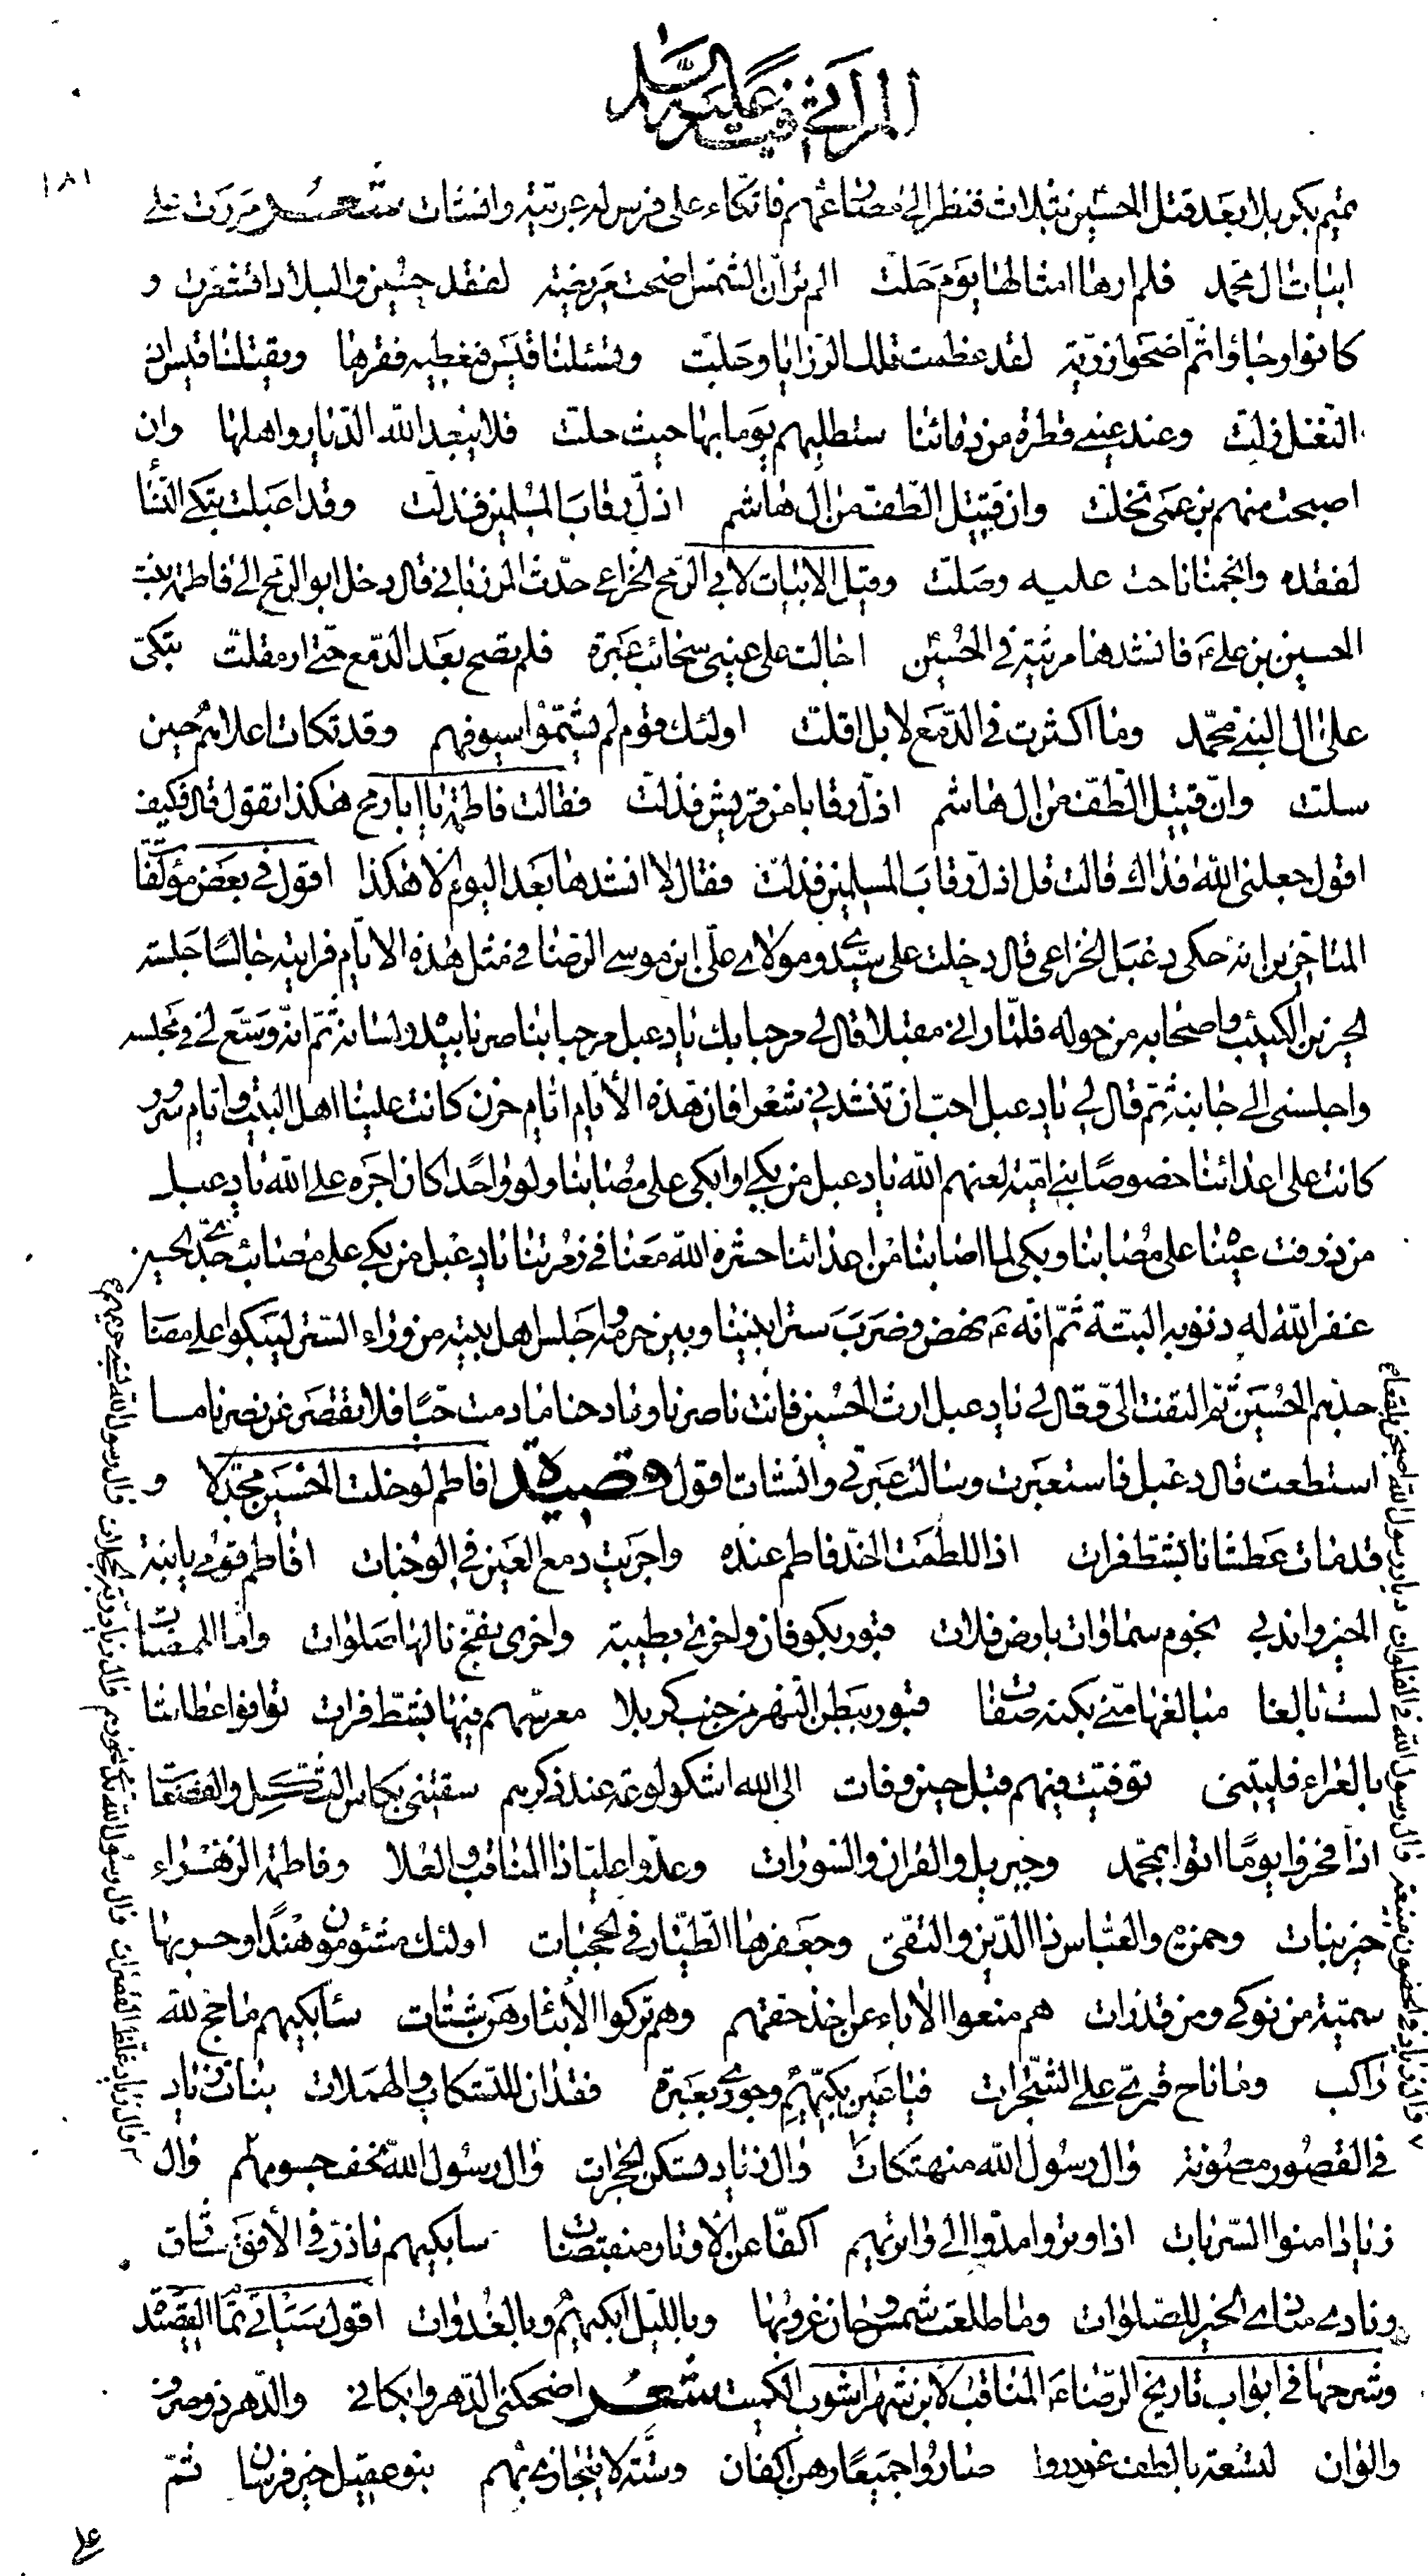 المراثي فيه عليه السلام
١٨١
تميم بكربلا بعد قتل الحسين بثلاث فنظر الى مصارعهم فاتكاء على فرس له عربية وانشات شعر مررت على
ابيات ال محمد فلم ارها امثالها يوم حلت الم تر ان الشمس اضحت مريضة لفقد حسين والبلاد اقشعرت و
كانوا رجاء ثم اضحوا رزية لقد عظمت تلك الرزايا وجلت وتسئلنا قيس فنعطيه فقرها وتقتلنا قيس اذ
النعل زلت وعند غنى قطرة من دمائنا سنطلبهم يوما بها حيث حلت فلا يبعد الله الديار واهلها وان
اصبحت منهم برغمى تخلت وان قتيل الطف من ال هاشم اذل رقاب المسلمين فذلت وقد اعولت تبكي النساء
لفقده وانجمنا ناحت عليه وصلت وقيل الابيات لابي الرمح الخزاعي حدث المرزباني قال دخل ابو الرمح الى فاطمة بنت
الحسين بن علي ع فانشدها مرثية في الحسين اجالت على عيني سحائب عبرة فلم تصح بعد الدمع حتى ارمعلت تبكي
على ال النبي محمد وما اكثرت في الدمع لا بل اقلت اولئك قوم لم يشيموا سيوفهم وقد نكات اعدائهم حين
سلت وان قتيل الطف من ال هاشم اذل رقابا من قريش فذلت فقالت فاطمة يا ابا رمح هكذا تقول قال فكيف
اقول جعلني الله فداك قالت قل اذل رقاب المسلمين فذلت فقال لا انشدها بعد اليوم الا هكذا اقول في بعض مؤلفات
المتاخرين انه حكى دعبل الخزاعي قال دخلت على سيدي ومولاي علي ابن موسى الرضا في مثل هذه الايام فرايته جالسا جلسة
الحزين الكئيب واصحابه من حوله فلما راني مقبلا قال لي مرحبا بك يا دعبل مرحبا بناصرنا بيده ولسانه ثم انه وسع لي في مجلسه
واجلسني الى جانبه ثم قال لي يا دعبل احب ان تنشدني شعرا فان هذه الايام ايام حزن كانت علينا اهل البيت وايام سرور
كانت على اعدائنا خصوصا بني امية لعنهم الله يا دعبل من بكى او ابكى على مصابنا ولو واحدا كان اجره على الله يا دعبل
من ذرفت عيناه على مصابنا وبكى لما اصابنا من اعدائنا حشره الله معنا في زمرتنا يا دعبل من بكى على مصاب جدي الحسين
غفر الله له ذنوبه البتة ثم انه ع نهض وضرب سترا بيننا وبين حرمه واجلس اهل بيته من وراء الستر ليبكوا على مصاب
جدهم الحسين ثم التفت الي وقال لي يا دعبل ارث الحسين فانت ناصرنا ومادحنا ما دمت حيا فلا تقصر عن نصرنا ما
استطعت قال دعبل فاستعبرت وسالت عبرتي وانشات اقول قصيدة افاطم لو خلت الحسين مجدلا و
قد مات عطشانا بشط فرات اذا للطمت الخد فاطم عنده واجريت دمع العين في الوجنات افاطم قومي يا ابنة
الخير واندبي نجوم سماوات بارض فلات قبور بكوفان واخرى بطيبة واخرى بفخ نالها صلوات واما الممضات
لست بالغا مبالغها مني بكنه صفات قبور ببطن النهر من جنب كربلا معرسهم فيها بشط فرات توافوا عطاشا
بالعراء فليتني توفيت فيهم قبل حين وفات الى الله اشكو لوعة عند ذكرهم سقتني بكاس الثكل والفضعات
اذا فخروا يوما اتوا بمحمد وجبريل والقران والسورات وعدوا عليا ذا المناقب والعلا وفاطمة الزهراء
خير بنات وحمزة والعباس ذا الدين والتقى وجعفرها الطيار في الحجبات اولئك مشئومون هندا وحربها
سمية من نوكى ومن قذرات هم منعوا الاباء عن اخذ حقهم وهم تركوا الابناء رهن شتات سابكيهم ما حج لله
راكب وما ناح قمري على الشجرات فيا عين بكيهم وجودي بعبرة فقد ان للتسكاب والهملات بنات زياد
في القصور مصونة وال رسول الله منهتكات وال زياد تسكن الحجرات وال رسول الله نحف جسومهم وال
زياد امنوا السربات اذا وتروا مدوا الى واتريهم اكفا عن الاوتار منقبضات سابكيهم ما ذر في الافق شارق
ونادى منادي الخير للصلوات وما طلعت شمس وحان غروبها وبالليل ابكيهم وبالغدوات اقول سياتي تمام القصيدة
وشرحها في ابواب تاريخ الرضا ع المناقب لابن شهراشوب الكميت شعر اضحكني الدهر وابكاني والدهر ذو صرف
والوان لتسعة بالطف غودروا صاروا جميعا رهن اكفان وستة لا يتجازى بهم بنو عقيل خير فرسان ثم
على
وال زياد في الحصون منيعة وال رسول الله في الفلوات ديار رسول الله اصبحن بلقعا
وال رسول الله تسبى حريمهم
وال زياد ربة الحجلات وال رسول الله تدمى نحورهم
وال زياد غلظ القصرات